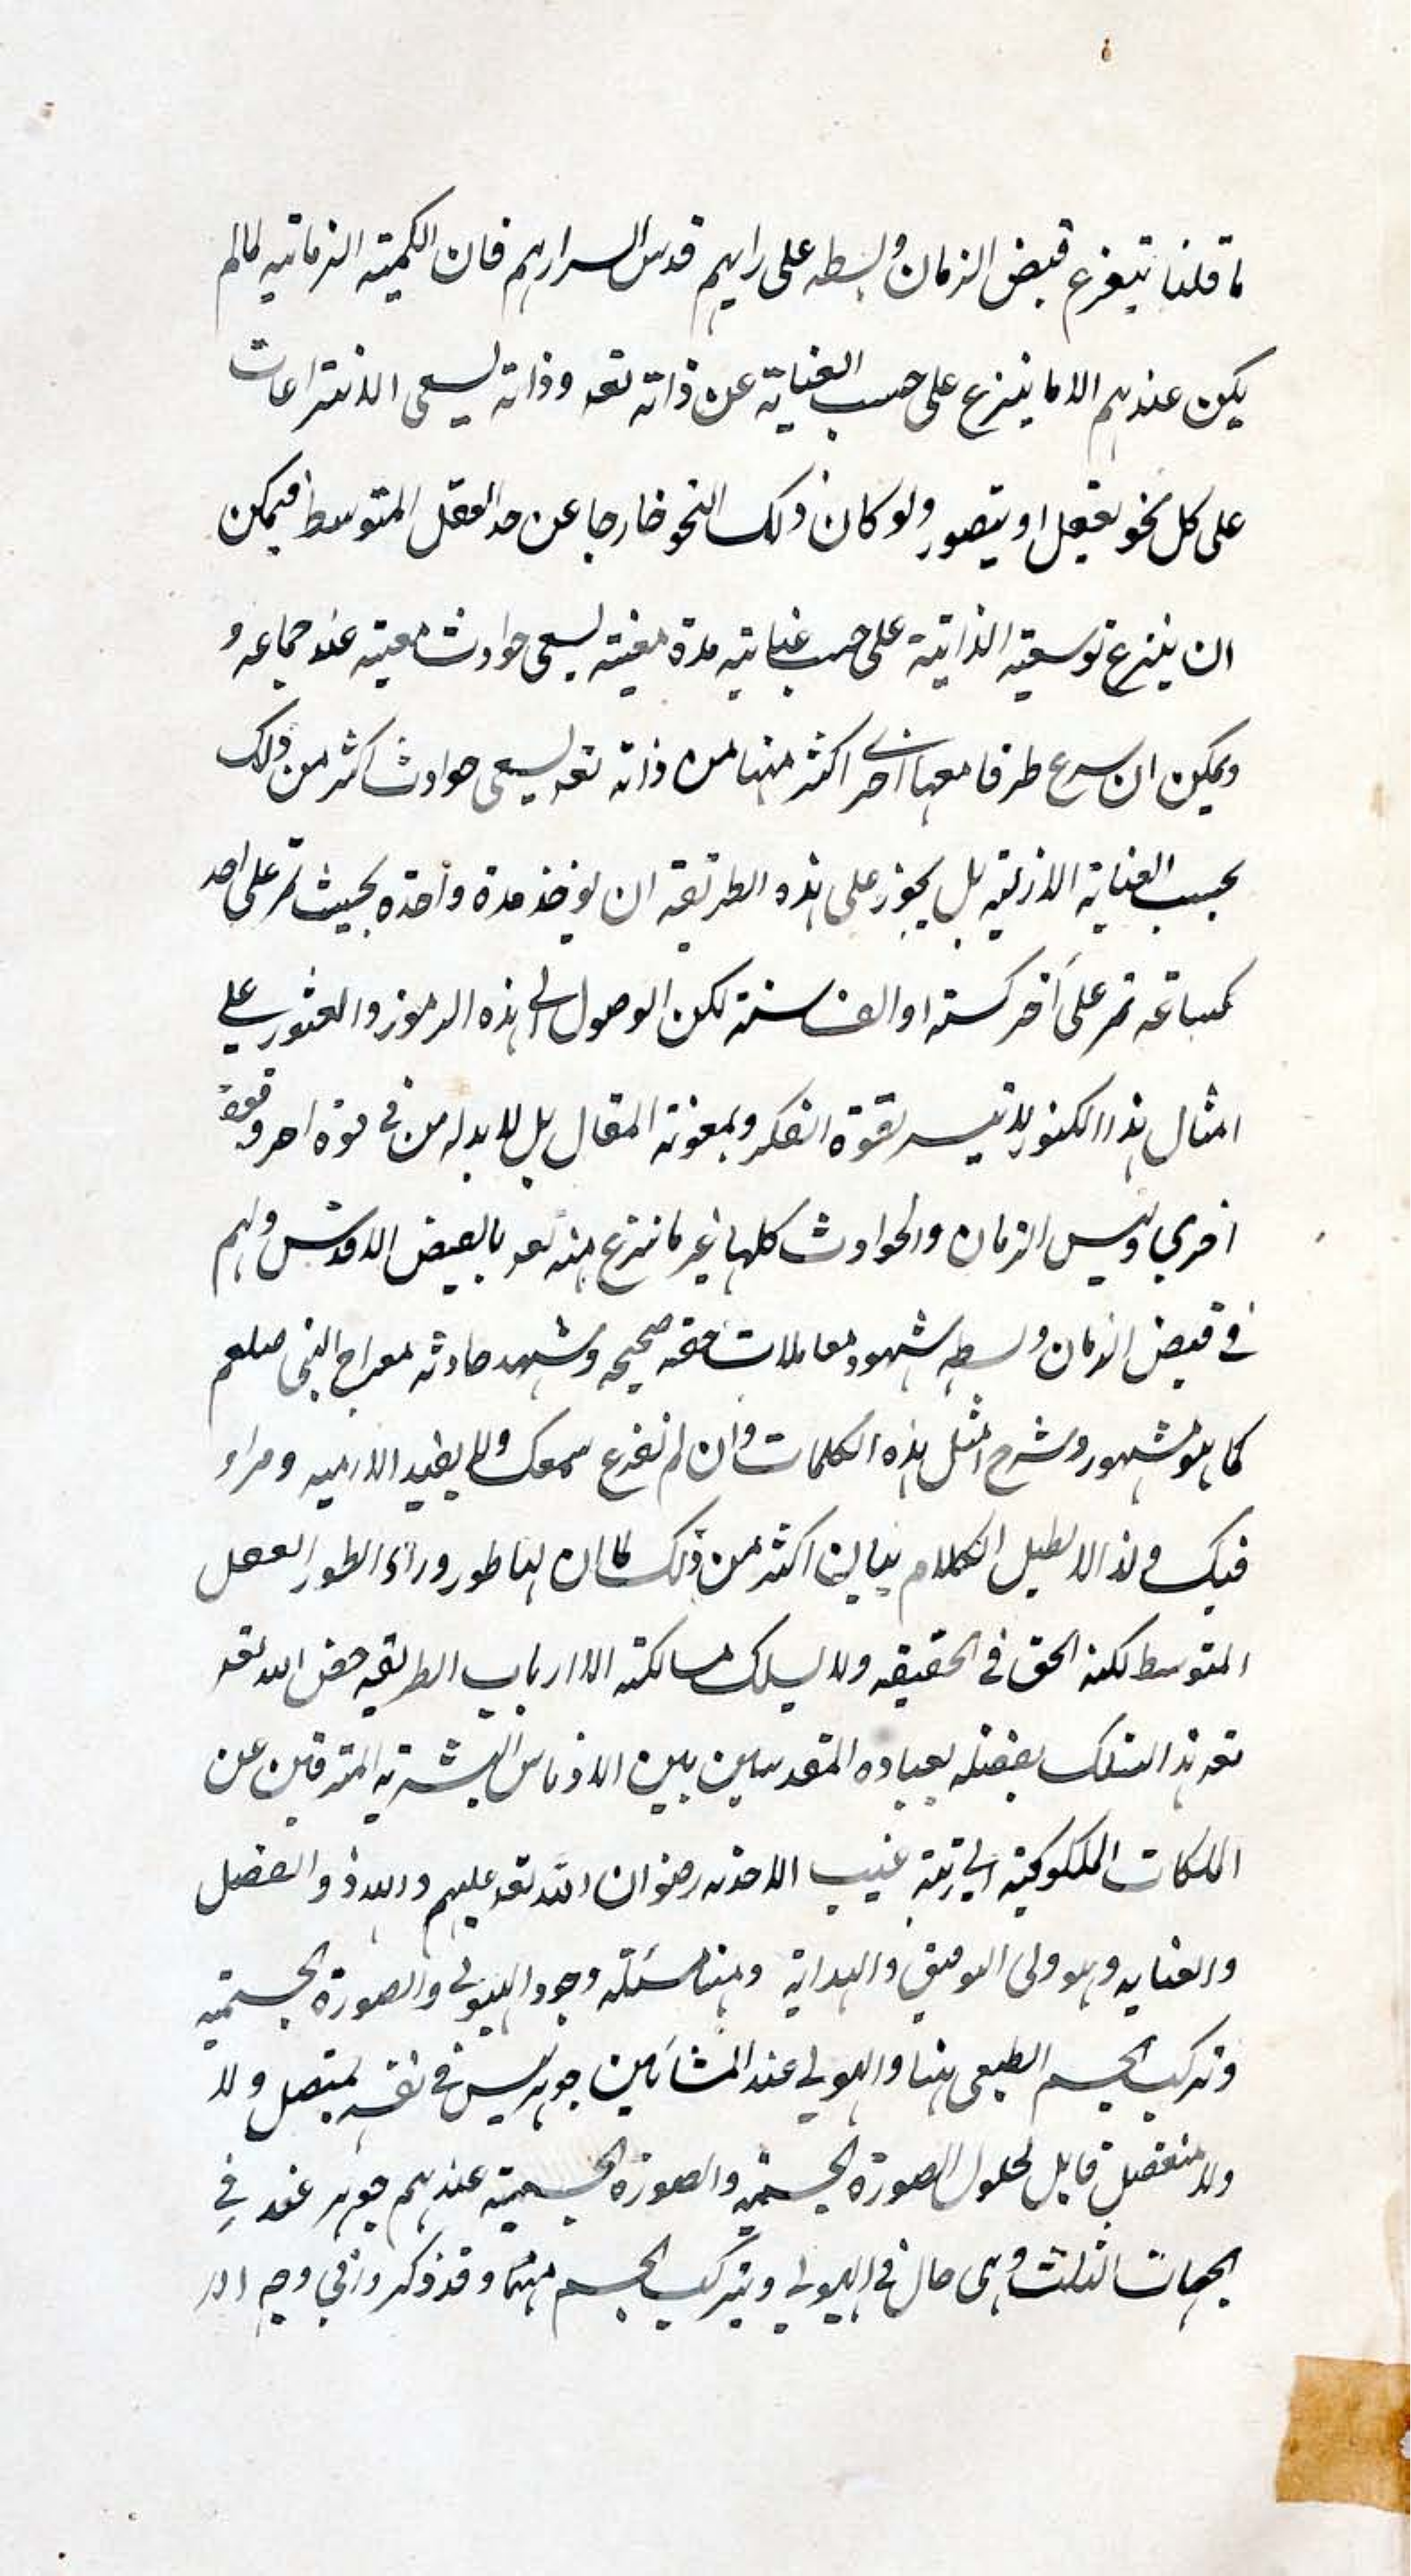 ما قلنا يتفرع قبض الزمان وبسطه على رايهم قدس اسرارهم فان الكمية الزمانيه لما لم
يكن عندهم الا ما ينزع على حسب العناية عن ذاته تعه وذاته يسعى الانتزاعات
على كل نحو يعقل او يتصور ولو كان ذلك النحو خارجا عن حد العقل المتوسط فيمكن
ان ينتزع توسعته الذاتية على حسب عنايته مدة معينه يسعى حوادث معينه عند جماعه و
ويمكن ان طرفا معها اخرى اكثر منها من ذاته تعه يسعى حوادث اكثر من ذلك
بحسب العناية الازليه بل يجوز على هذه الطريقة ان يوخذ مدة واحدة بحيث تمر على احد
كساعه تمر على آخر كسنه او الف سنة لكن الوصول الى هذه الرموز والعثور على
امثال هذا الكنوز لا تيسر بقوة الفكر وبمعونة المقال بل لا بد له من قوة اخر وقوة
اخرى وليس الزمان والحوادث كلها غير ما ننزع منه تعه بالفيض الاقدس ولهم
في قبض الزمان وبسطه شهود معاملات حقه صحيحه وشهد حادثه معراج النبى صلعم
كما هو مشهور وشرح امثل هذه الكلمات وان لم تفرع سمعك ولا يفيد الا ومراو
فيك ولذا لا نطيل الكلام بيا اكثر من ذلك لما ان لها طور وراء الطور العقل
المتوسط لكنه الحق في الحقيقه ولا يسلك مسالكته الا ارباب الطريقه خص الله تعه
تعه هذا السلك بفضله بعباده المقدسين بين الادناس البشرية المترقين عن
الملكات الملكوكية الى رتبة غيب الاحدية رضوان الله تعه عليهم والفضل
والعنايه وهو ولى التوفيق والهداية ومنها مسئلة وجود الهيولى والصورة الجسميه
وتركيب الجسم الطبعى منها والهيولى عند المشائين جوهر ليس في نفسه بمتصل ولا
ولا منفصل قابل لحلول الصورة الجسمية والصورة الجسمية عندهم جوهر عند في
الجهات الثلث وهى حال في الهيولى ويتركب الجسم منهما وقد ذكر وا في وجه